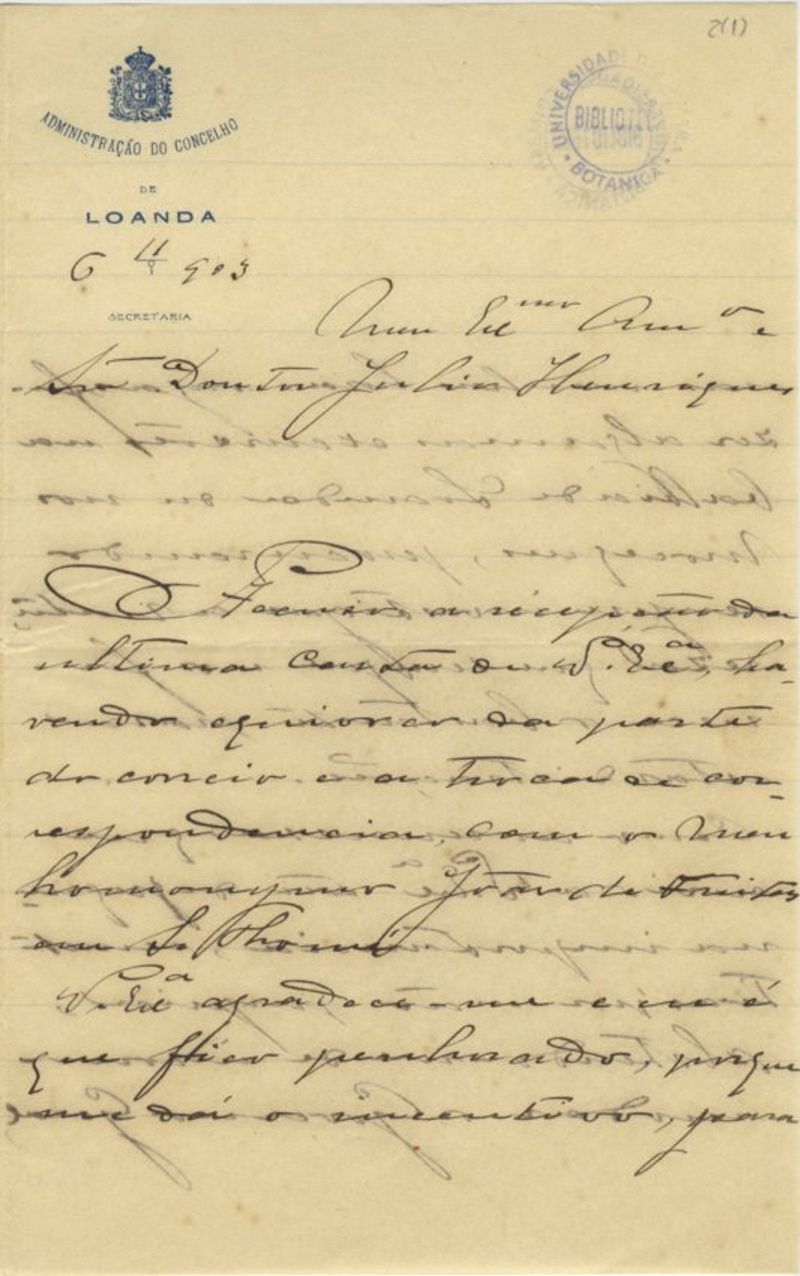 2(1)
ADMINISTRAÇÃO DO CONCELHO
DE
LOANDA
6 11 903
SECRETARIA
UNIVERSIDADE
BOTANICA
Meu Excmo Amo e
Snr Doutor Julio Henriques
a recepção da
ultima carta de V. Exca, ha-
vendo da parte
do correio e a troca de cor-
respondencia, com o meu
homonymo João de Freitas
em S. Thomé
V. Exca agradece-me e eu é
que fico penhorado, porque
me dá o incentivo, para